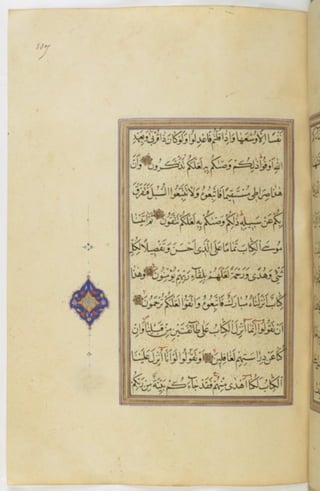 نفسا الا وسعها واذا قلتم فاعدلوا ولو كان ذا قربى وبعهد
الله اوفوا ذلكم وصىكم به لعلكم تذكرون وان
هذا صراطى مستقيما فاتبعوه ولا تتبعوا السبل فتفرق
بكم عن سبيله ذلكم وصىكم به لعلكم تتقون ثم اتينا
موسى الكتاب تماما على الذى احسن وتفصيلا لكل
شئ وهدى ورحمة لعلهم بلقاء ربهم يؤمنون وهذا
كتاب انزلناه مبارك فاتبعوه واتقوا لعلكم ترحمون
ان تقولوا انما انزل الكتاب على طائفتين من قبلنا وان
كنا عن دراستهم لغافلين او تقولوا لو انا انزل علينا
الكتاب لكنا اهدى منهم فقد جاءكم بينة من ربكم